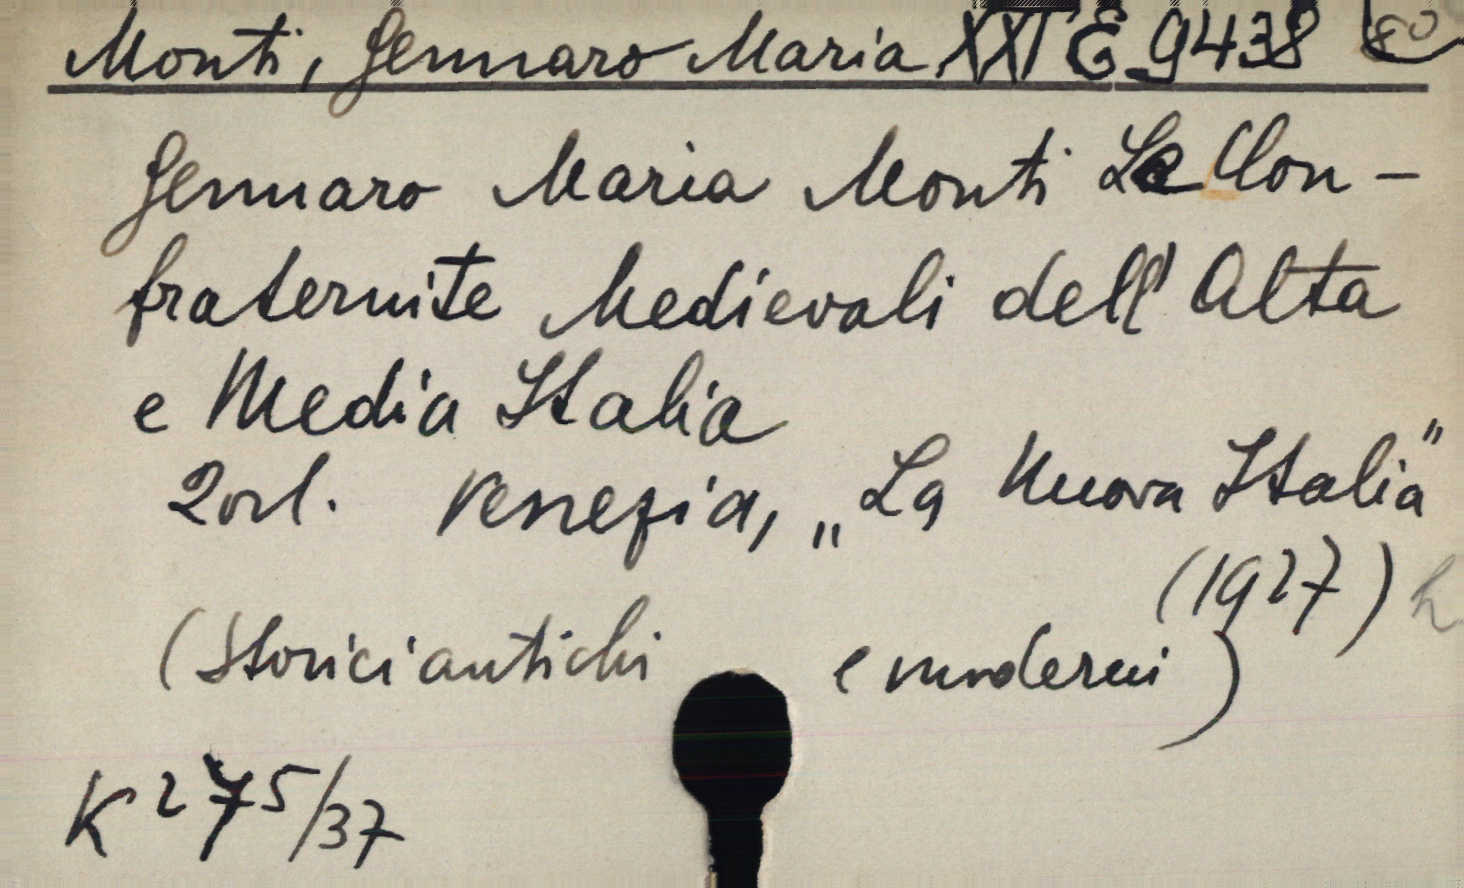 Monti, Gennaro Maria XXI E 9438 8°
Gennaro Maria Monti Le Con-
fraternite Medievali dell' Alta
e Media Italia
2 vol. Venezia, „La Nuova Italia"
(1927) h
(Storici antichi e moderni)
K 275/37